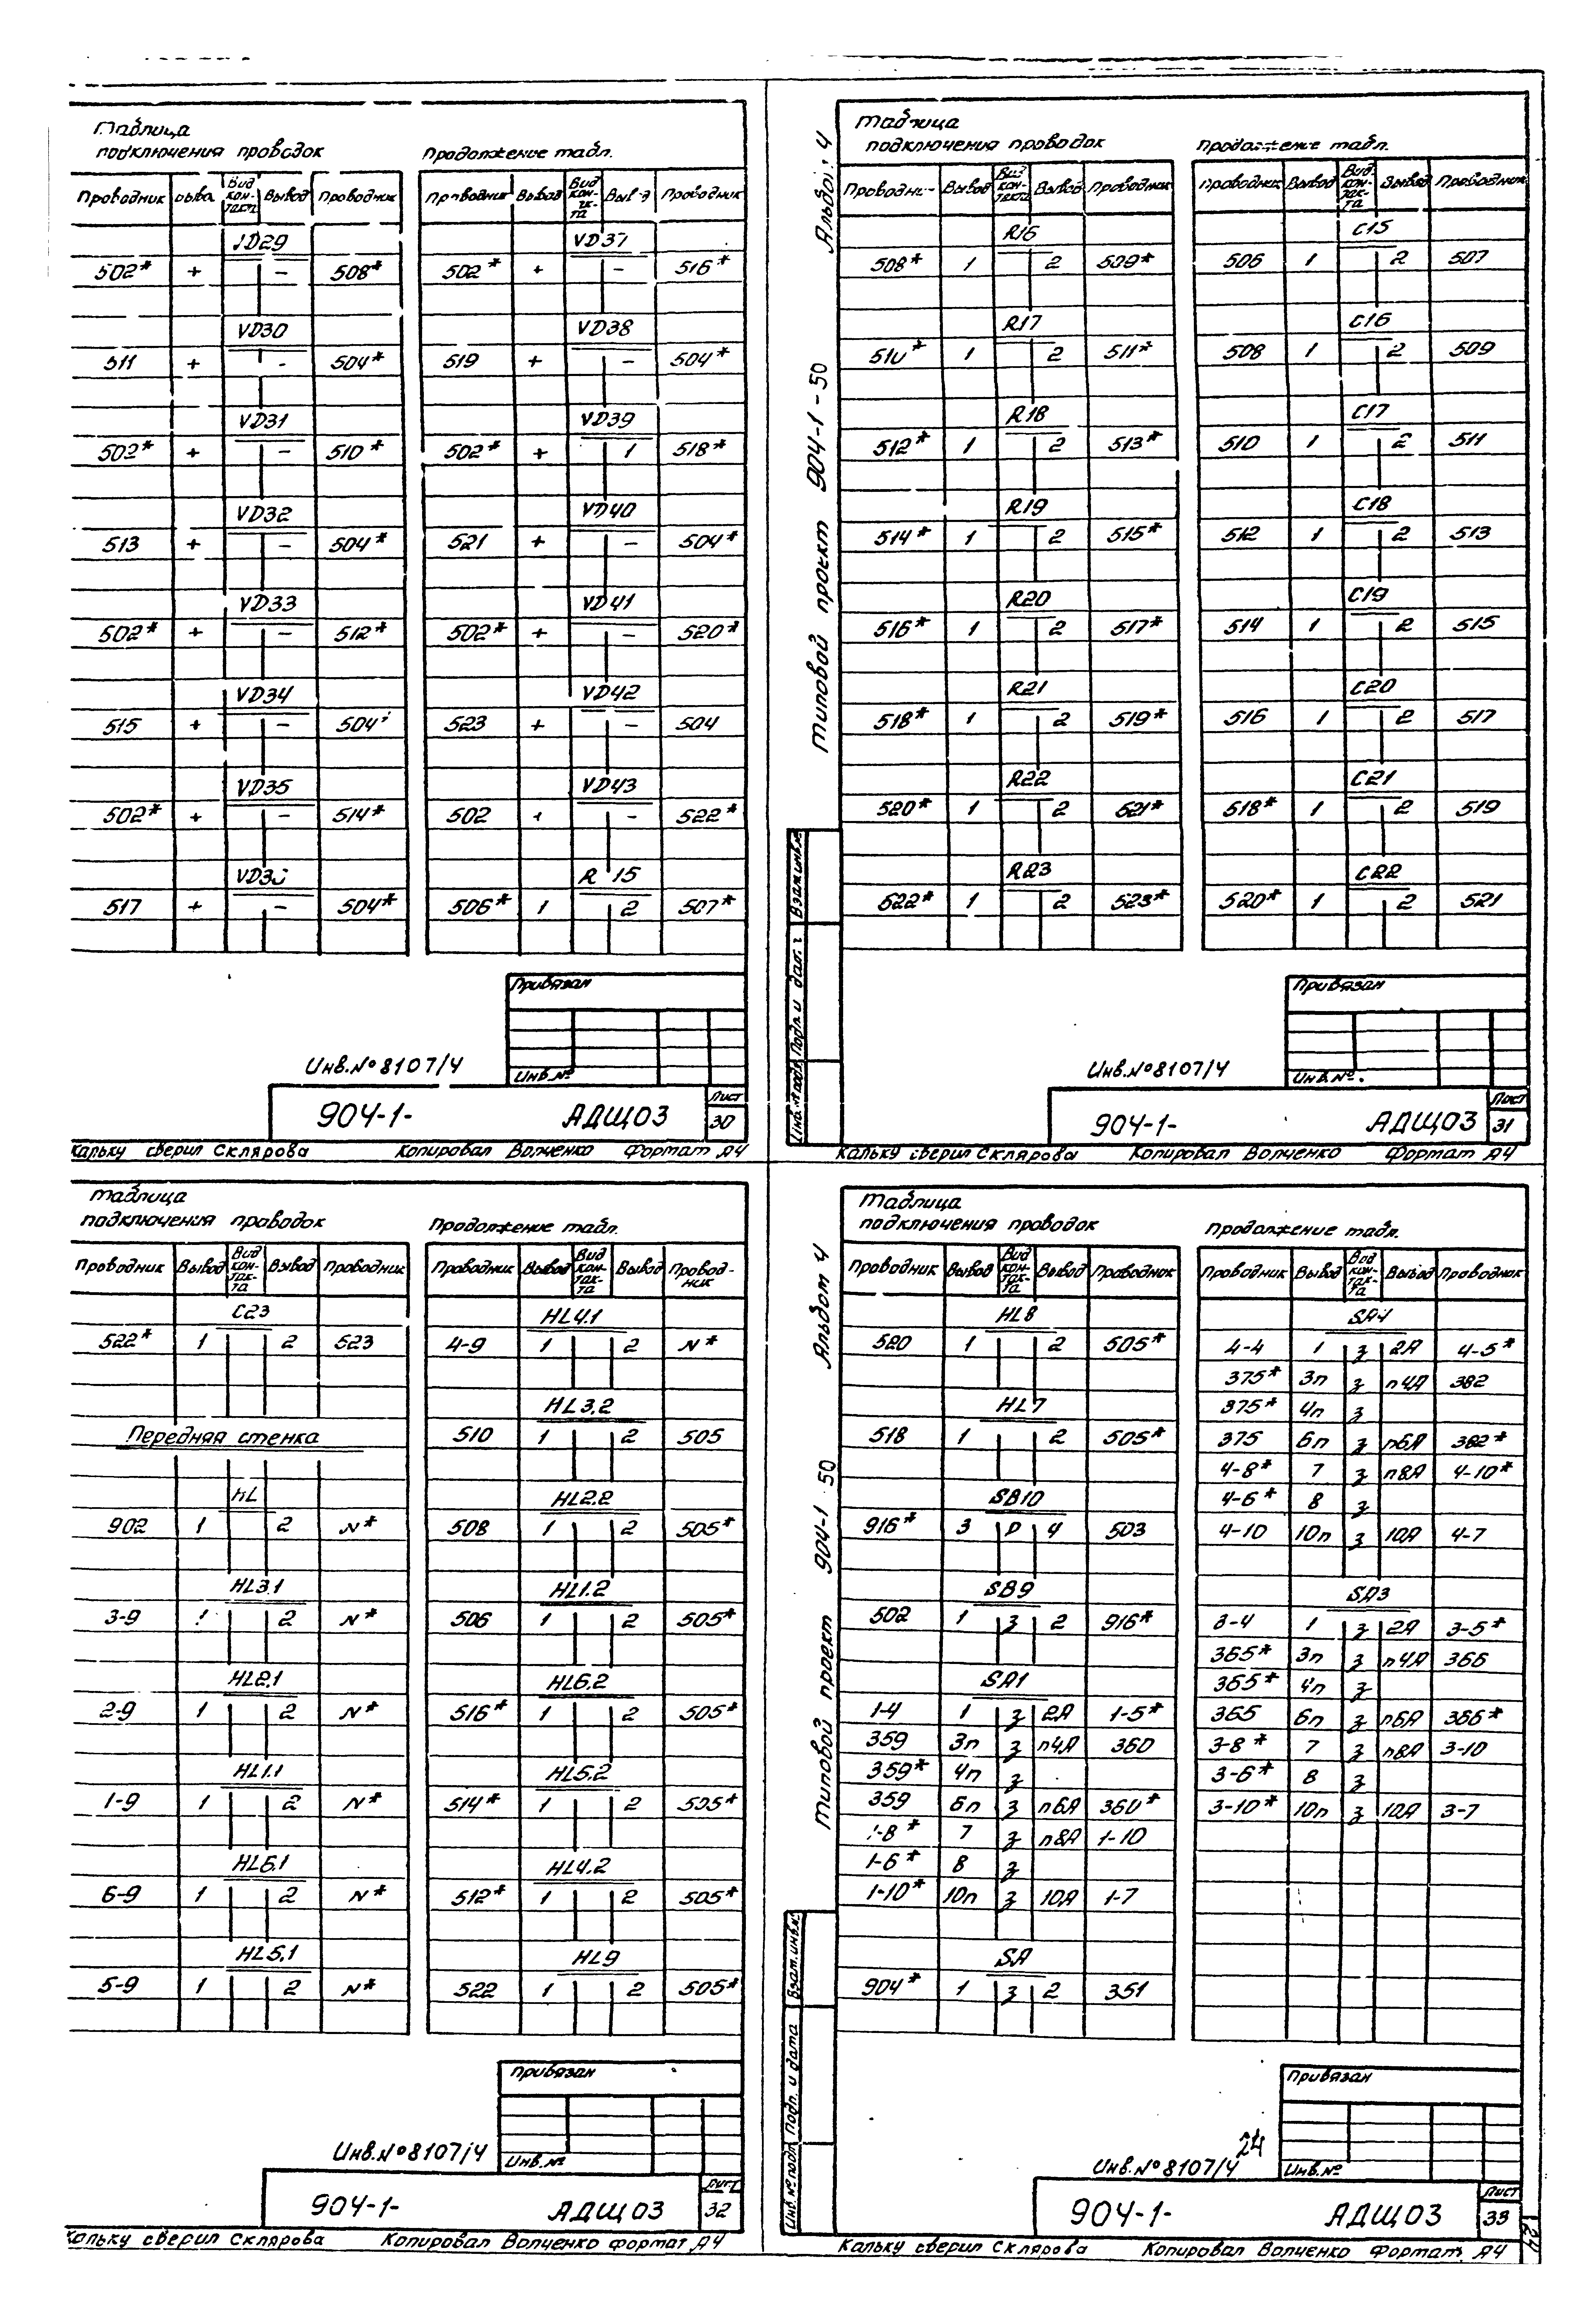 Таблица
подключения проводок
Продолжение табл.
Проводник Вид кон- Вывод Проводник
Вывод Вид кон- так- та Проводник
VD37
502* + – 508* 502* + – 516*
VD30 VD38
511 + – 504* 519 + – 504*
VD31 VD39
502* + – 510* 502* + 1 518*
VD32 VD40
513 + – 504* 521 + – 504*
VD33 VD41
502* + – 512* 502* + – 520*
VD34 VD42
515 + – 504* 523 + – 504
VD35 VD43
502* + – 514* 502 + – 522*
R 15
517 + – 504* 506* 1 2 507*
Привязан
Инв.№
Инв.№8107/4
904-1- АДЩ03 Лист 30
Кальку сверил Склярова Копировал Волченко Формат А4
Альбом 4
типовой проект 904-1-50
Таблица
подключения проводок
Продолжение табл.
Вывод Вид кон- такта Вывод Проводник
Проводник Вывод Вид кон- так- та Вывод Проводник
R16 C15
508* 1 2 509* 506 1 2 507
R17 C16
510* 1 2 511* 508 1 2 509
R18 C17
512* 1 2 513* 510 1 2 511
R19 C18
514* 1 2 515* 512 1 2 513
R20 C19
516* 1 2 517* 514 1 2 515
R21 C20
518* 1 2 519* 516 1 2 517
R22 C21
520* 1 2 521* 518* 1 2 519
R23 C22
522* 1 2 523* 520* 1 2 521
Взам.инв.№
Подп. и дата
Инв.№ подл.
Привязан
Инв.№.
Инв.№8107/4
904-1- АДЩ03 Лист 31
Кальку сверил Склярова Копировал Волченко Формат А4
Таблица
подключения проводок
Продолжение табл.
Проводник Вывод Вид кон- так- та Вывод Проводник
Проводник Вывод Вид кон- так- та Вывод Провод- ник
C23 HL4.1
522* 1 2 523 4-9 1 2 N*
HL3,2
Передняя стенка 510 1 2 505
HL HL2.2
902 1 2 N* 508 1 2 505*
HL3.1 HL1.2
3-9 1 2 N* 506 1 2 505*
HL2,1 HL6.2
2-9 1 2 N* 516* 1 2 505*
HL1.1 HL5.2
1-9 1 2 N* 514* 1 2 505*
HL6.1 HL4.2
6-9 1 2 N* 512* 1 2 505*
HL5,1 HL9
5-9 1 2 N* 522 1 2 505*
Привязан
Инв.№
Инв.№8107/4
904-1- АДЩ03 Лист 32
Кальку сверил Склярова Копировал Волченко формат А4
Альбом 4
типовой проект 904-1 50
Таблица
подключения проводок
Проводник Вывод Вид кон- так- та Вывод Проводник
HL8
520 1 2 505*
HL7
518 1 2 505*
SB10
916* 3 р 4 503
SB9
502 1 з 2 916*
SA1
1-4 1 з 2Л 1-5*
359 3п з п4Л 360
359* 4п з
359 6п з п6Л 360*
1-8* 7 з п8Л 1-10
1-6* 8 з
1-10* 10п з 10Л 1-7
SA
904* 1 з 2 351
Продолжение табл.
Проводник Вывод Вид кон- так- та Вывод Проводник
SA4
4-4 1 з 2Л 4-5*
375* 3п з п4Л 382
375* 4п з
375 6п з п6Л 382*
4-8* 7 з п8Л 4-10*
4-6* 8 з
4-10 10п з 10Л 4-7
SA3
3-4 1 з 2Л 3-5*
365* 3п з п4Л 366
365* 4п з
365 6п з п6Л 366*
3-8* 7 з п8Л 3-10
3-6* 8 з
3-10* 10п з 10Л 3-7
Взам.инв.№
Подп. и дата
Инв.№ подл
Привязан
Инв.№
24
Инв.№8107/4
904-1- АДЩ03 Лист 33
Кальку сверил Склярова Копировал Волченко Формат А4
124